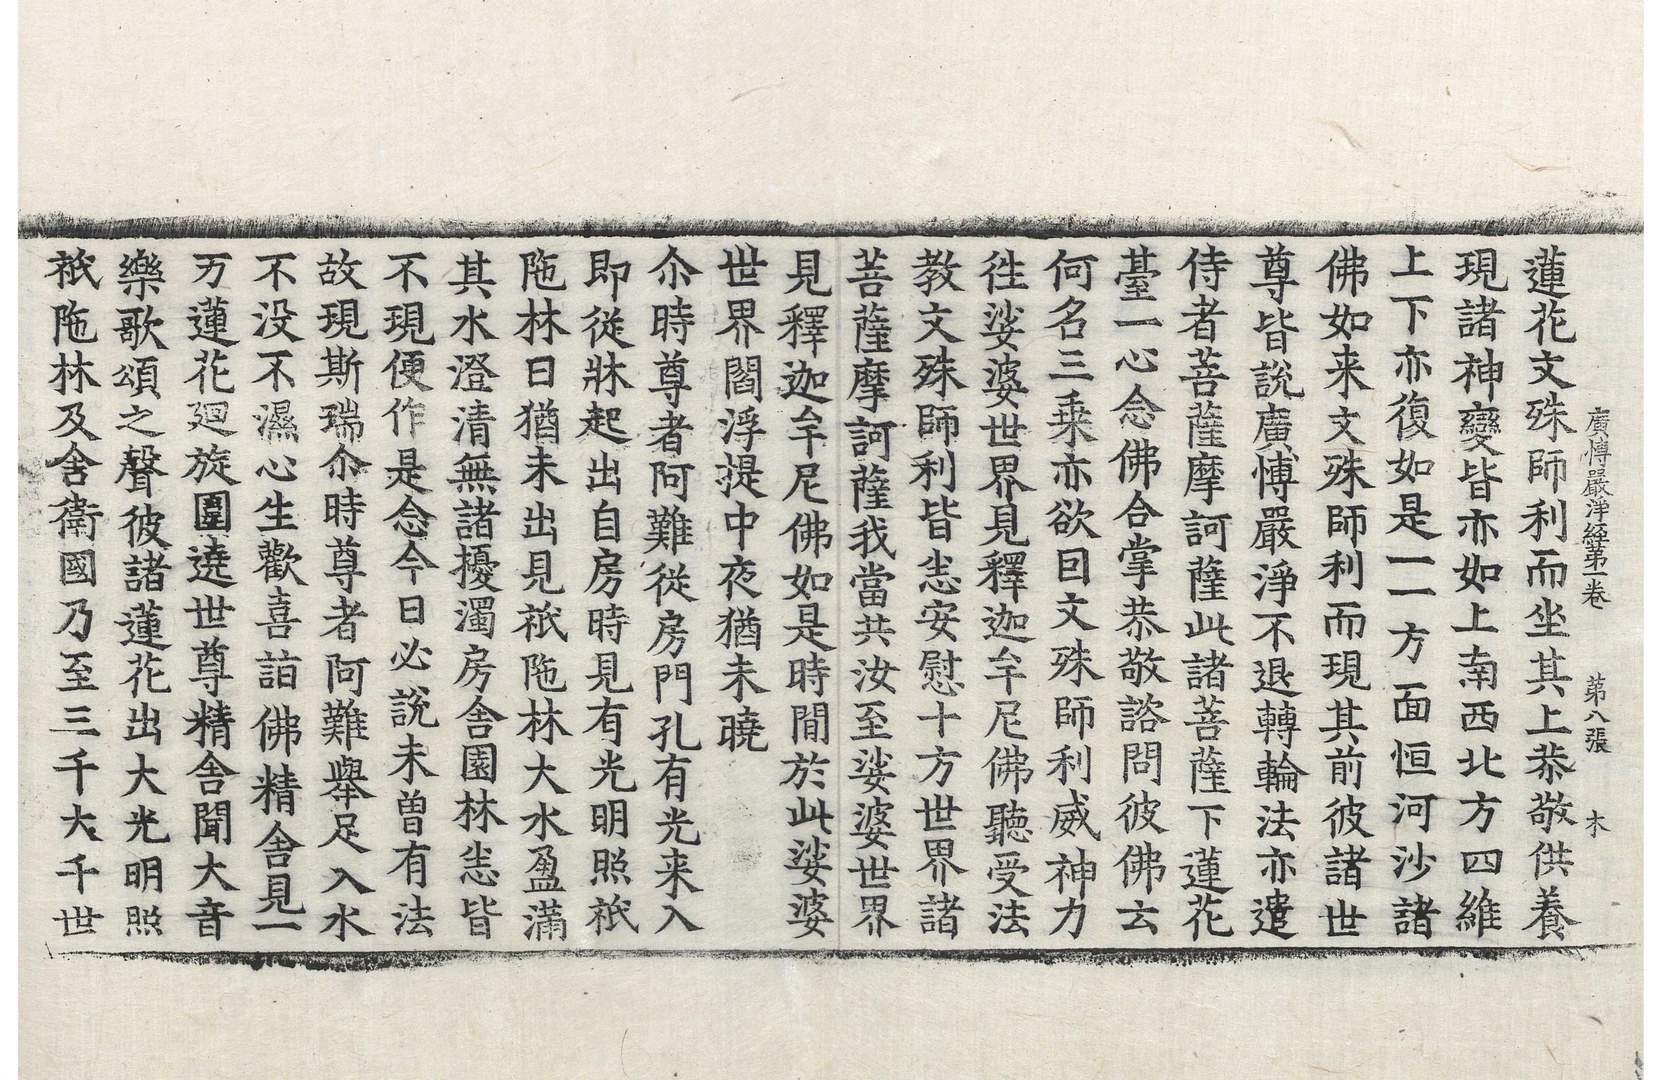 廣愽嚴淨經第一卷 第八張 木
蓮花文殊師利而坐其上恭敬供養
現諸神變皆亦如上南西北方四維
上下亦復如是一一方面恒河沙諸
佛如来文殊師利而現其前彼諸世
尊皆說廣愽嚴淨不退轉輪法亦遣
侍者菩薩摩訶薩此諸菩薩下蓮花
臺一心念佛合掌恭敬諮問彼佛云
何名三乗亦欲因文殊師利威神力
徃娑婆世界見釋迦牟尼佛聽受法
教文殊師利皆悉安慰十方世界諸
菩薩摩訶薩我當共汝至娑婆世界
見釋迦牟尼佛如是時間於此娑婆
世界閻浮提中夜猶未曉
尒時尊者阿難從房門孔有光来入
即從牀起出自房時見有光明照祇
陁林日猶未出見祇陁林大水盈滿
其水澄清無諸擾濁房舍園林悉皆
不現便作是念今日必說未曾有法
故現斯瑞尒時尊者阿難舉足入水
不没不濕心生歡喜詣佛精舍見一
万蓮花廻旋圍遶世尊精舍聞大音
樂歌頌之聲彼諸蓮花出大光明照
祇陁林及舍衛國乃至三千大千世